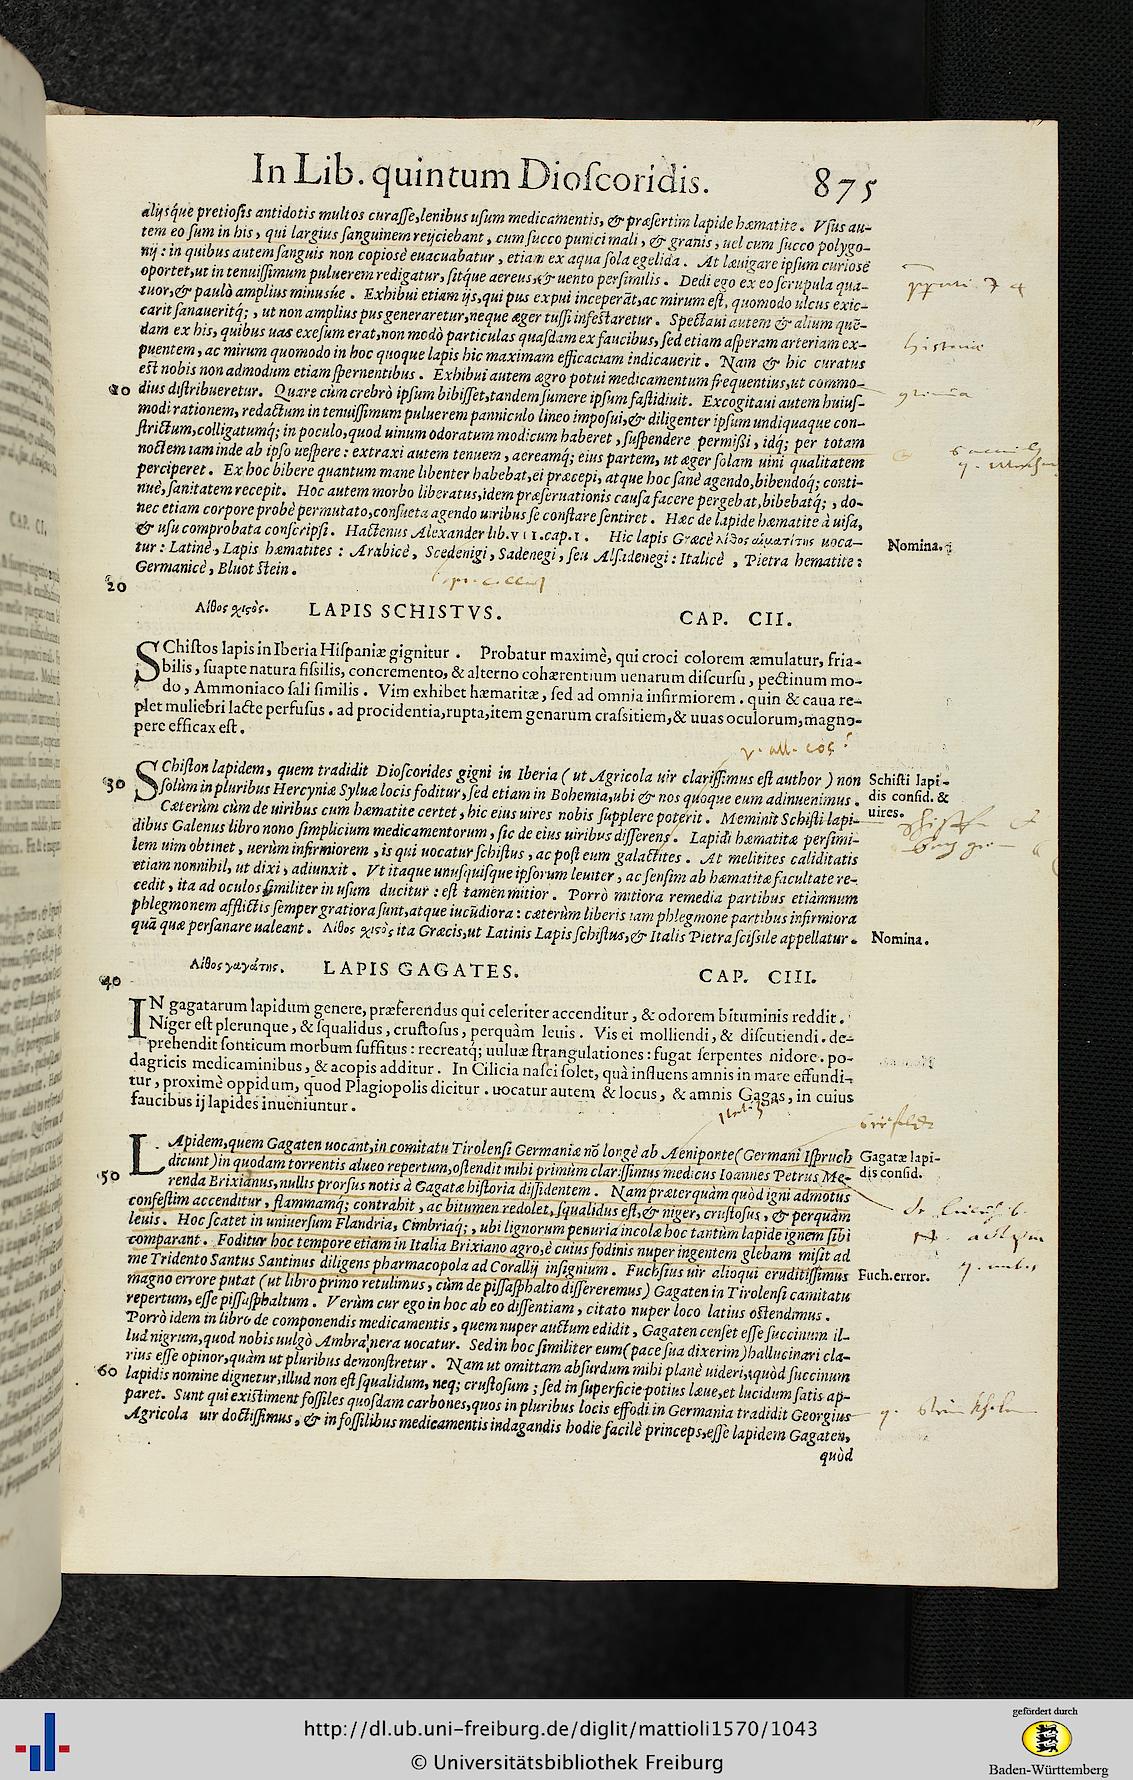 In Lib. quintum Dioſcoridis. 875
alijsq́ue pretioſis antidotis multos curaſſe, lenibus uſum medicamentis, & præſertim lapide hæmatite. Vſus au-
tem eo ſum in his, qui largius ſanguinem reijciebant, cum ſucco punici mali, & granis, uel cum ſucco polygo-
nij: in quibus autem ſanguis non copiosè euacuabatur, etiam ex aqua ſola egelida. At læuigare ipſum curiosè
oportet, ut in tenuiſsimum puluerem redigatur, ſitq́ue aereus, & uento perſimilis. Dedi ego ex eo ſcrupula qua-
tuor, & paulò amplius minusúe. Exhibui etiam ijs, qui pus expui inceperāt, ac mirum eſt, quomodo ulcus exic-
carit ſanaueritq́;, ut non amplius pus generaretur, neque æger tuſsi infeſtaretur. Spectaui autem & alium quē-
dam ex his, quibus uas exeſum erat, non modò particulas quaſdam ex faucibus, ſed etiam aſperam arteriam ex-
puentem, ac mirum quomodo in hoc quoque lapis hic maximam efficaciam indicauerit. Nam & hic curatus
eſt nobis non admodum etiam ſpernentibus. Exhibui autem ægro potui medicamentum frequentius, ut commo-
10 dius diſtribueretur. Quare cùm crebrò ipſum bibiſſet, tandem ſumere ipſum faſtidiuit. Excogitaui autem huiuſ-
modi rationem, redactum in tenuiſsimum puluerem panniculo lineo impoſui, & diligenter ipſum undiquaque con-
ſtrictum, colligatumq́; in poculo, quod uinum odoratum modicum haberet, ſuſpendere permiſsi, idq́; per totam
noctem iam inde ab ipſo ueſpere: extraxi autem tenuem, aereamq́; eius partem, ut æger ſolam uini qualitatem
perciperet. Ex hoc bibere quantum mane libenter habebat, ei præcepi, atque hoc ſanè agendo, bibendoq́; conti-
nuè, ſanitatem recepit. Hoc autem morbo liberatus, idem præſeruationis cauſa facere pergebat, bibebatq́;, do-
nec etiam corpore probè permutato, conſueta agendo uiribus ſe conſtare ſentiret. Hæc de lapide hæmatite à uiſa,
& uſu comprobata conſcripſi. Hactenus Alexander lib. VII. cap. I. Hic lapis Græcè λίθος αἱματίτης uoca-
tur: Latinè, Lapis hæmatites: Arabicè, Scedenigi, Sadenegi, ſeu Alſadenegi: Italicè, Pietra hematite:
Germanicè, Bluot ſtein.
Nomina.
20
Λίθος χιςὸς. LAPIS SCHISTVS. CAP. CII.
SChiſtos lapis in Iberia Hiſpaniæ gignitur. Probatur maximè, qui croci colorem æmulatur, fria-
bilis, ſuapte natura fiſsilis, concremento, & alterno cohærentium uenarum diſcurſu, pectinum mo-
do, Ammoniaco ſali ſimilis. Vim exhibet hæmatitæ, ſed ad omnia infirmiorem. quin & caua re-
plet muliebri lacte perfuſus. ad procidentia, rupta, item genarum craſsitiem, & uuas oculorum, magno-
pere efficax eſt.
30 SChiſton lapidem, quem tradidit Dioſcorides gigni in Iberia (ut Agricola uir clariſsimus eſt author) non
ſolùm in pluribus Hercyniæ Syluæ locis foditur, ſed etiam in Bohemia, ubi & nos quoque eum adinuenimus.
Cæterùm cùm de uiribus cum hæmatite certet, hic eius uires nobis ſupplere poterit. Meminit Schiſti lapi-
dibus Galenus libro nono ſimplicium medicamentorum, ſic de eius uiribus differens. Lapidi hæmatitæ perſimi-
lem uim obtinet, uerùm infirmiorem, is qui uocatur ſchiſtus, ac poſt eum galactites. At melitites caliditatis
etiam nonnihil, ut dixi, adiunxit. Vt itaque unuſquiſque ipſorum leuiter, ac ſenſim ab hæmatitæ facultate re-
cedit, ita ad oculos ſimiliter in uſum ducitur: eſt tamen mitior. Porrò mitiora remedia partibus etiamnum
phlegmonem afflictis ſemper gratiora ſunt, atque iucūdiora: cæterùm liberis iam phlegmone partibus infirmiora
quā quæ perſanare ualeant. Λίθος χιςὸς ita Græcis, ut Latinis Lapis ſchiſtus, & Italis Pietra ſciſsile appellatur.
Schiſti lapi-
dis conſid. &
uires.
Nomina.
40
Λίθος γαγάτης. LAPIS GAGATES. CAP. CIII.
IN gagatarum lapidum genere, præferendus qui celeriter accenditur, & odorem bituminis reddit.
Niger eſt plerunque, & ſqualidus, cruſtoſus, perquàm leuis. Vis ei molliendi, & diſcutiendi. de-
prehendit ſonticum morbum ſuffitus: recreatq́; uuluæ ſtrangulationes: fugat ſerpentes nidore. po-
dagricis medicaminibus, & acopis additur. In Cilicia naſci ſolet, quà influens amnis in mare effundi-
tur, proximè oppidum, quod Plagiopolis dicitur. uocatur autem & locus, & amnis Gagas, in cuius
faucibus ij lapides inueniuntur.
LApidem, quem Gagaten uocant, in comitatu Tirolenſi Germaniæ nō longè ab Aeniponte (Germani Iſpruch
dicunt) in quodam torrentis alueo repertum, oſtendit mihi primùm clariſsimus medicus Ioannes Petrus Me-
50 renda Brixianus, nullis prorſus notis à Gagatæ hiſtoria diſſidentem. Nam præterquàm quòd igni admotus
confeſtim accenditur, flammamq́; contrahit, ac bitumen redolet, ſqualidus eſt, & niger, cruſtoſus, & perquàm
leuis. Hoc ſcatet in uniuerſum Flandria, Cimbriaq́;, ubi lignorum penuria incolæ hoc tantùm lapide ignem ſibi
comparant. Foditur hoc tempore etiam in Italia Brixiano agro, è cuius fodinis nuper ingentem glebam miſit ad
me Tridento Santus Santinus diligens pharmacopola ad Corallij inſignium. Fuchſius uir alioqui eruditiſsimus
magno errore putat (ut libro primo retulimus, cùm de piſſaſphalto diſſereremus) Gagaten in Tirolenſi camitatu
repertum, eſſe piſſaſphaltum. Verùm cur ego in hoc ab eo diſſentiam, citato nuper loco latius oſtendimus.
Porrò idem in libro de componendis medicamentis, quem nuper auctum edidit, Gagaten cenſet eſſe ſuccinum il-
lud nigrum, quod nobis uulgò Ambra nera uocatur. Sed in hoc ſimiliter eum (pace ſua dixerim) hallucinari cla-
rius eſſe opinor, quàm ut pluribus demonſtretur. Nam ut omittam abſurdum mihi planè uideri, quòd ſuccinum
60 lapidis nomine dignetur, illud non eſt ſqualidum, neq; cruſtoſum; ſed in ſuperficie potius læue, et lucidum ſatis ap-
paret. Sunt qui exiſtiment foſsiles quoſdam carbones, quos in pluribus locis effodi in Germania tradidit Georgius
Agricola uir doctiſsimus, & in foſsilibus medicamentis indagandis hodie facilè princeps, eſſe lapidem Gagaten,
quòd
Gagatæ lapi-
dis conſid.
Fuch. error.
CAP. CI.
http://dl.ub.uni-freiburg.de/diglit/mattioli1570/1043
© Universitätsbibliothek Freiburg
gefördert durch
Baden-Württemberg